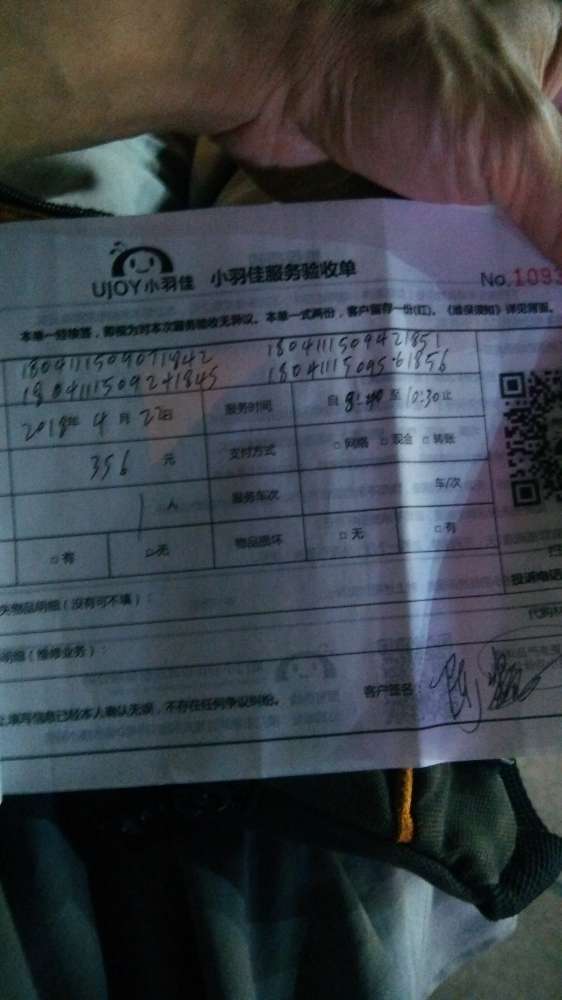 UJOY小羽佳 小羽佳服务验收单 No.1093
本单一经接签，即视为对本次服务验收无异议。本单一式两份，客户留存一份(红)。《维保须知》详见背面。
1804111509071842 1804111509421851
1804111509241845 1804111509561856
2018年 4月 22日 服务时间 自 8:40 至 10:30 止
356 元 支付方式 □ 网络 □ 现金 □ 转账
1 人 服务车次 车/次
□ 有 □ 无 物品损坏 □ 无 □ 有
投诉电话
失物品明细（没有可不填）：
代购材
明细（维修业务）：
上填写信息已经本人确认无误，不存在任何争议纠纷。 客户签名：